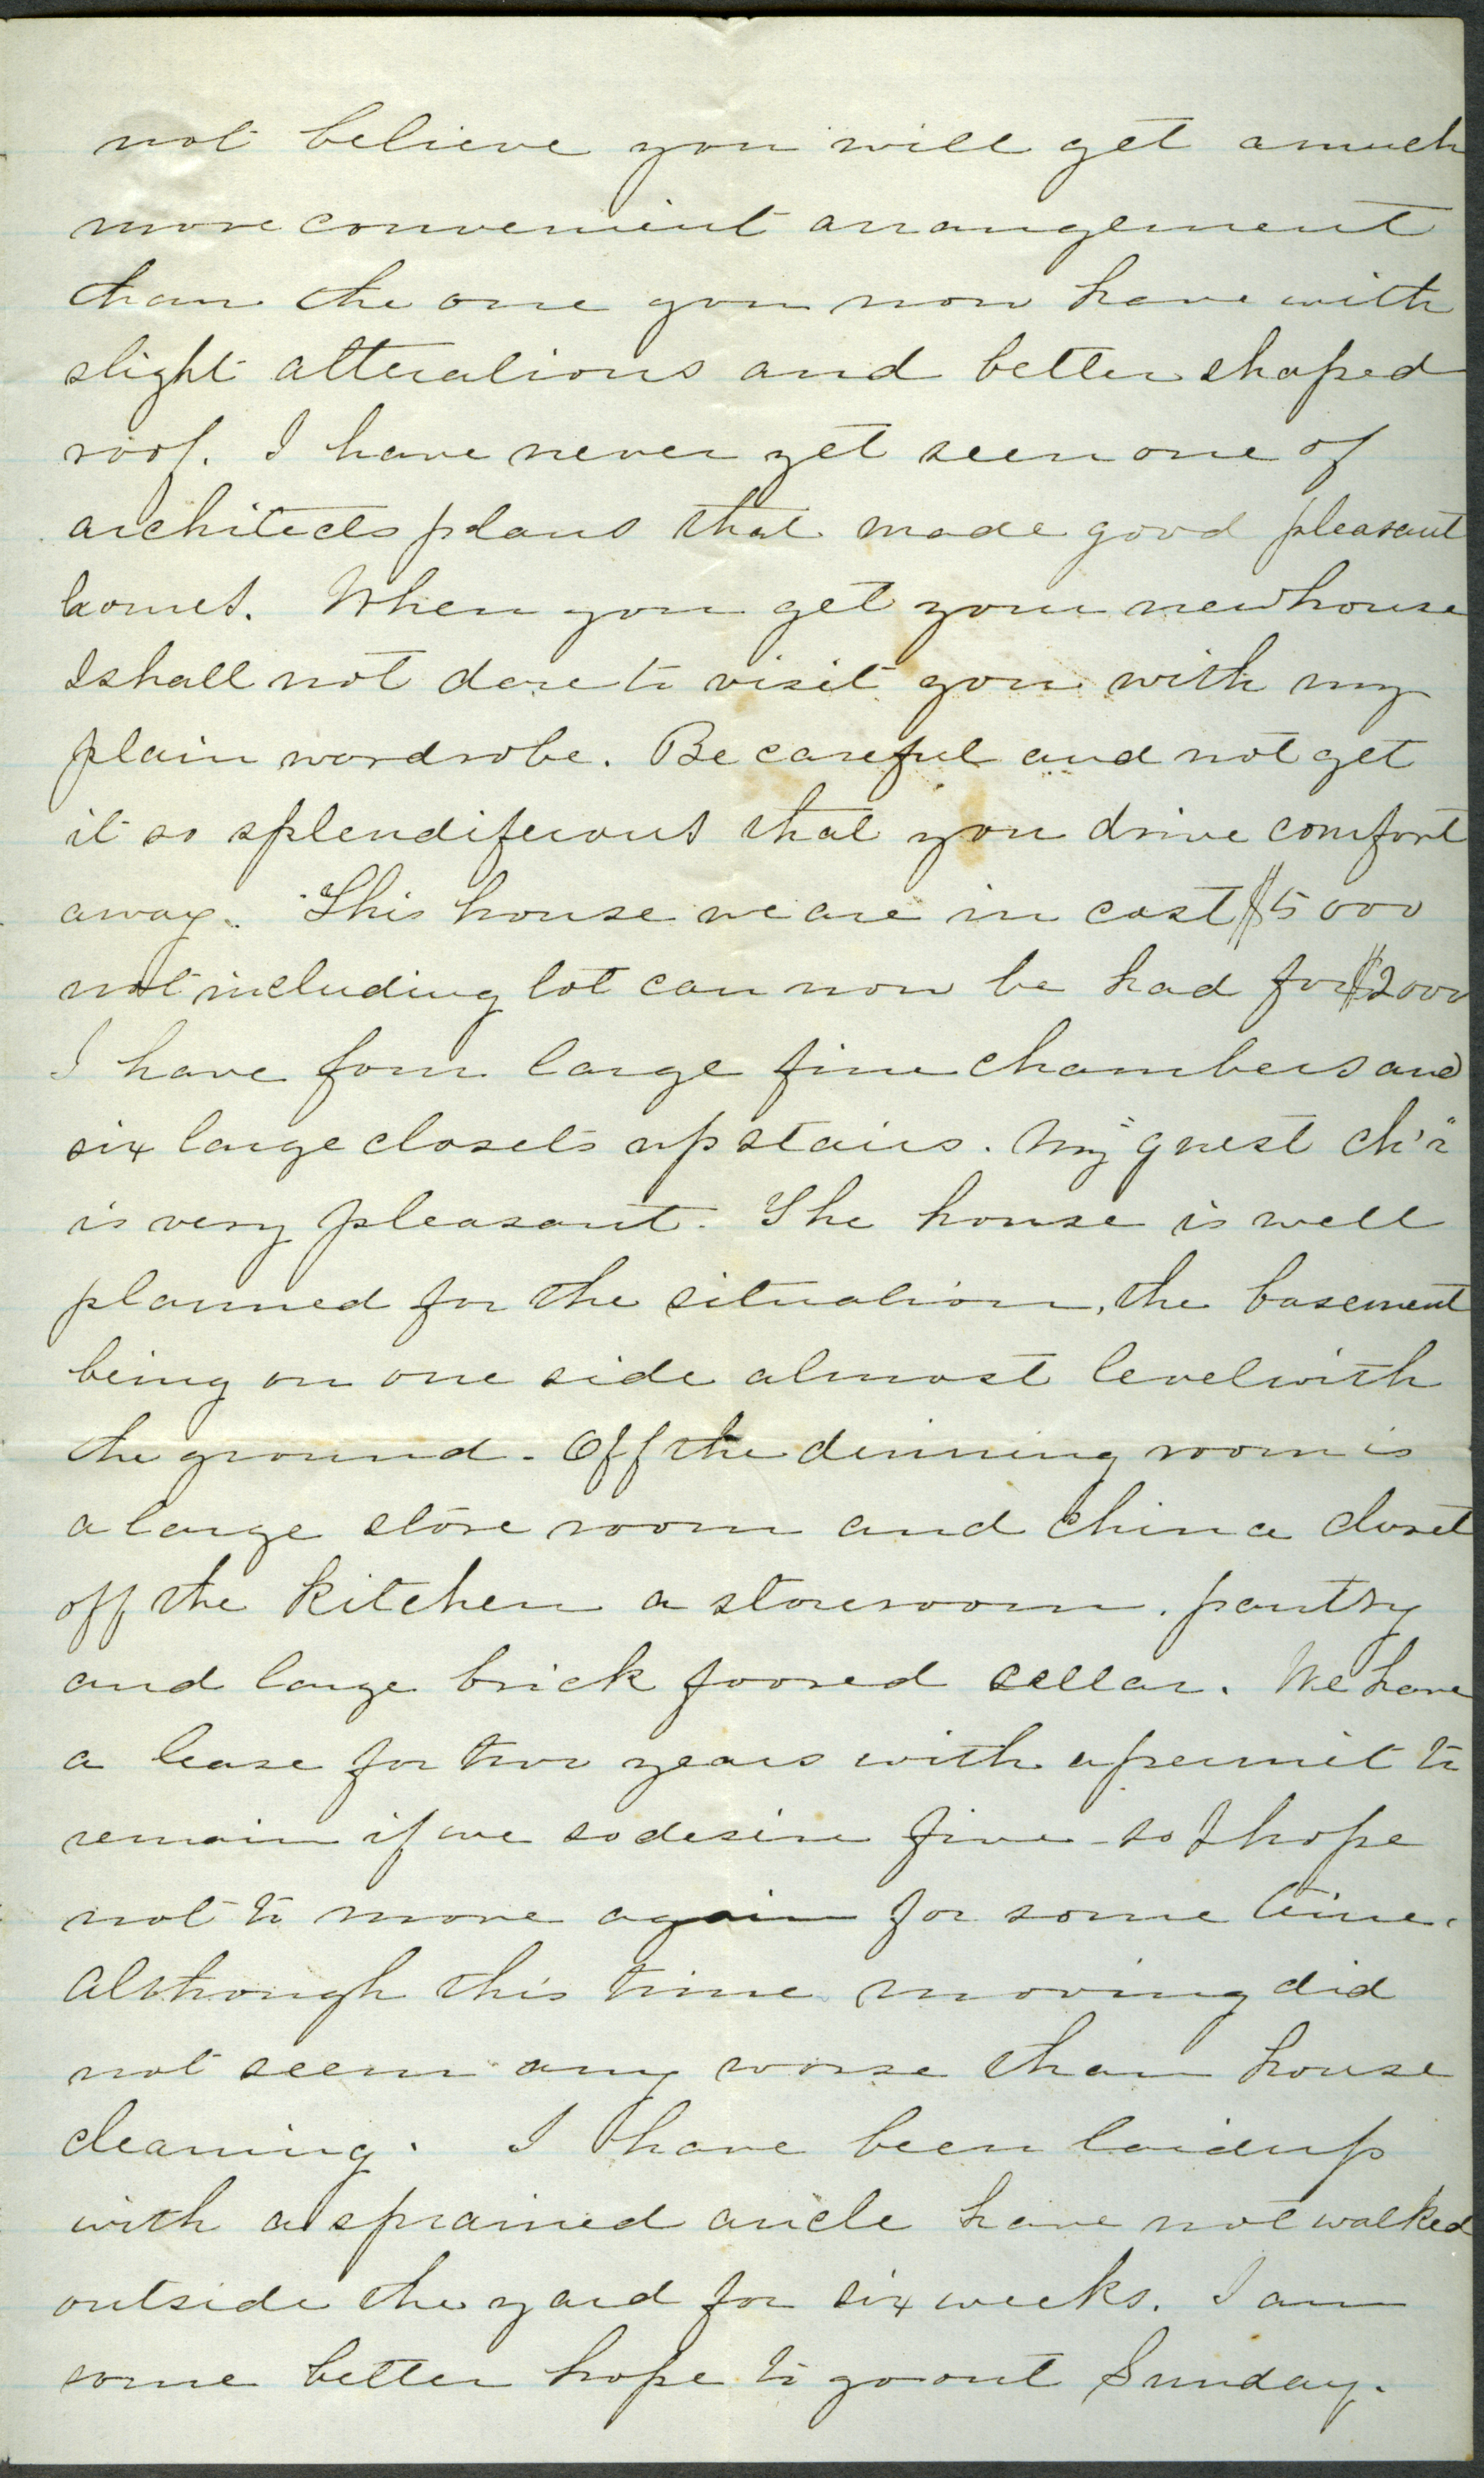 not believe you will get a much
more convenient arrangement
than the one you now have with
slight alterations and better shaped
roof. I have never yet seen one of
architects plans that made good pleasant
homes. When you get your new house
I shall not dare to visit you with my
plain wardrobe. Be careful and not get
it so splendiferous that you drive comfort
away. This house we are in cost $5000
not including lot can now be had for $2000
I have four large fine chambers and
six large closets up stairs. My guest ch'r
is very pleasant. The house is well
planned for the situation, the basement
being on one side almost level with
the ground. Off the dinning room is
a large store room and China closet
off the kitchen a storeroom, pantry
and large brick foored cellar. We have
a lease for two years with a permit to
remain if we so desire five - so I hope
not to move again for some time.
Although this time moving did
not seem any worse than house
cleaning. I have been laid up
with a sprained ancle have not walked
outside the yard for six weeks. I am
some better hope to go out Sunday.